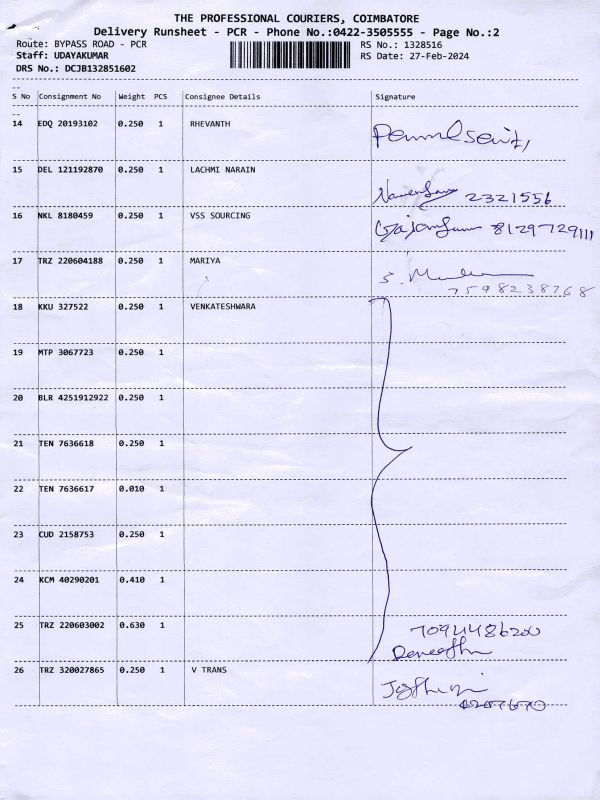 THE PROFESSIONAL COURIERS, COIMBATORE
Delivery Runsheet - PCR - Phone No.:0422-3505555 - Page No.:2
Route: BYPASS ROAD - PCR RS No.: 1328516
Staff: UDAYAKUMAR RS Date: 27-Feb-2024
DRS No.: DCJB132851602
S No Consignment No Weight PCS Consignee Details Signature
14 EDQ 20193102 0.250 1 RHEVANTH
15 DEL 121192870 0.250 1 LACHMI NARAIN
2321556
16 NKL 8180459 0.250 1 VSS SOURCING
8129729111
17 TRZ 220604188 0.250 1 MARIYA
7598238768
18 KKU 327522 0.250 1 VENKATESHWARA
19 MTP 3067723 0.250 1
20 BLR 4251912922 0.250 1
21 TEN 7636618 0.250 1
22 TEN 7636617 0.010 1
23 CUD 2158753 0.250 1
24 KCM 40290201 0.410 1
25 TRZ 220603002 0.630 1
7094486200
26 TRZ 320027865 0.250 1 V TRANS